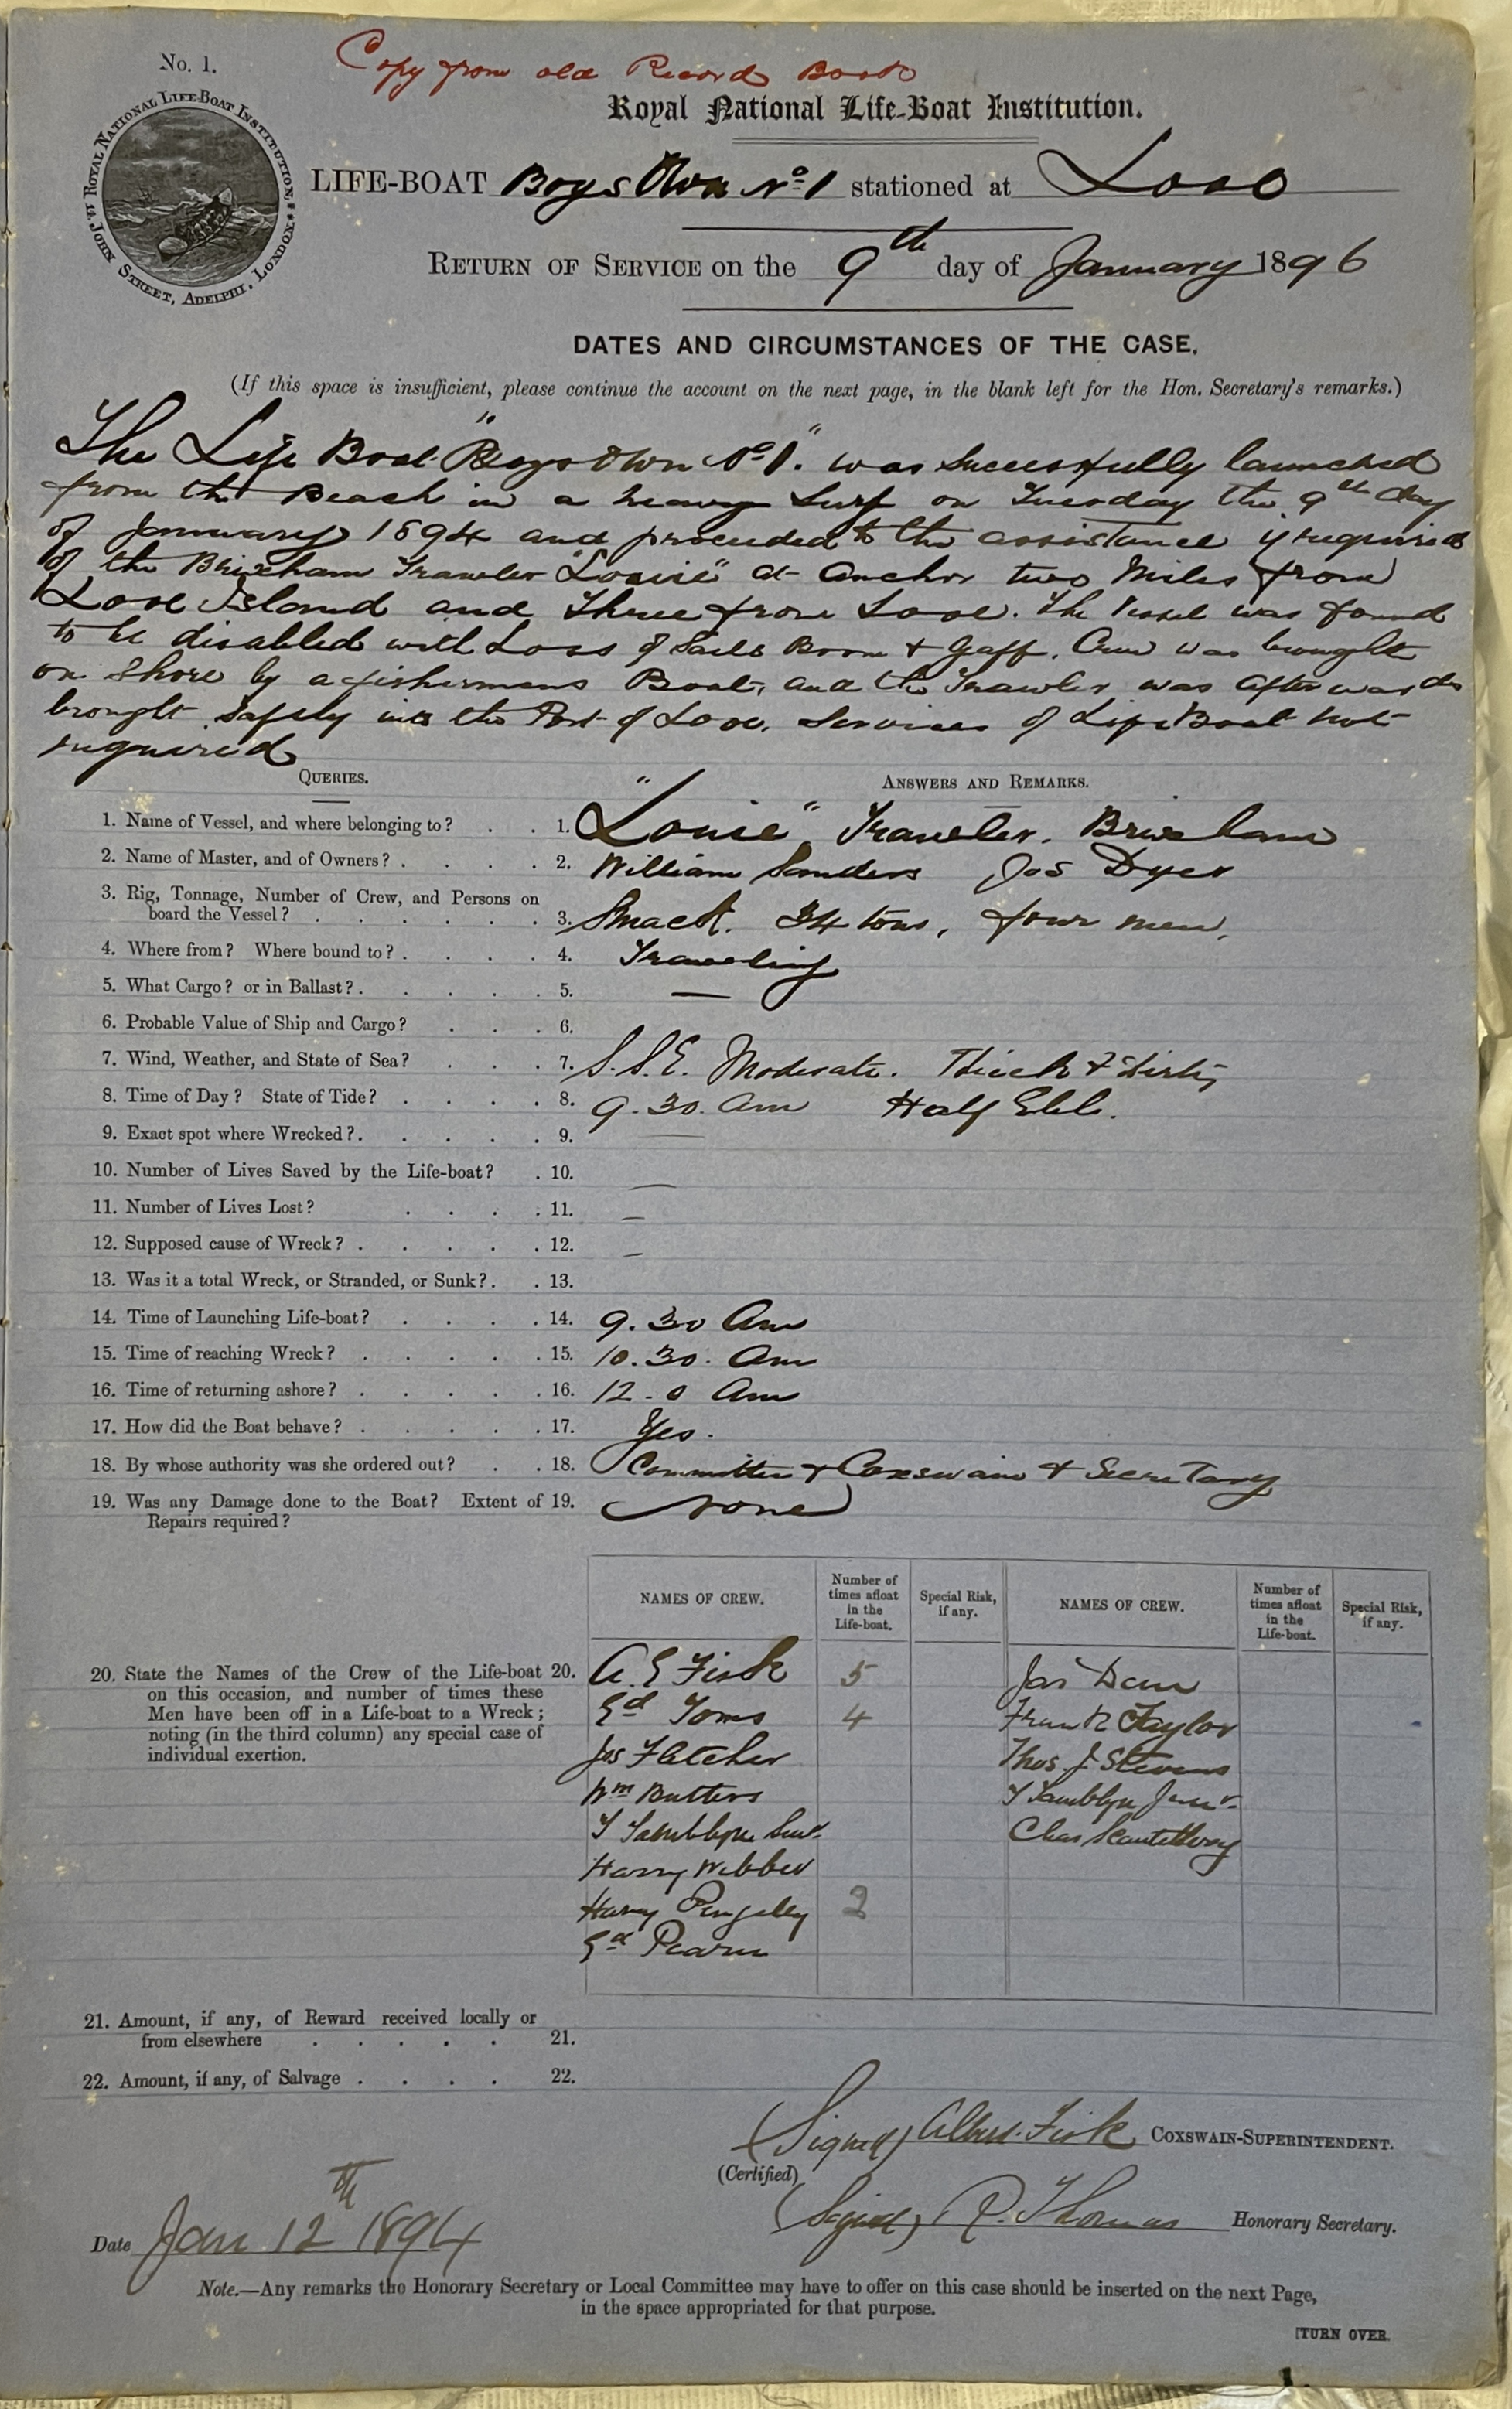 No. 1.
Copy from old Record Book
ROYAL NATIONAL LIFE-BOAT INSTITUTION, 14, JOHN STREET, ADELPHI, LONDON.
Royal National Life-Boat Institution.
LIFE-BOAT Boys Own No 1 stationed at Looe
RETURN OF SERVICE on the 9th day of January 1896
DATES AND CIRCUMSTANCES OF THE CASE.
(If this space is insufficient, please continue the account on the next page, in the blank left for the Hon. Secretary's remarks.)
The Life Boat "Boys Own No 1." was successfully launched
from the Beach in a heavy Surf on Tuesday the 9th day
of January 1894 and proceeded to the assistance if required
of the Brixham Trawler "Louise" at Anchor two Miles from
Looe Island and Three from Looe. The Vessel was found
to be disabled with Loss of Sails Boom & Gaff. Crew was brought
on Shore by a fishermans Boat, and the Trawler was afterwards
brought safely into the Port of Looe. Services of Life Boat not
required
QUERIES.
ANSWERS AND REMARKS.
1. Name of Vessel, and where belonging to? . . 1. "Louise" Trawler. Brixham
2. Name of Master, and of Owners? . . . . . 2. William Sanders Jos Dyer
3. Rig, Tonnage, Number of Crew, and Persons on
board the Vessel? . . . . . . . 3. Smack. 34 tons, four men,
4. Where from? Where bound to? . . . . 4. Trawling
5. What Cargo? or in Ballast? . . . . . 5. —
6. Probable Value of Ship and Cargo? . . . 6.
7. Wind, Weather, and State of Sea? . . . 7. S.S.E. Moderate. Thick & dirty
8. Time of Day? State of Tide? . . . . 8. 9.30. Am Half Ebb.
9. Exact spot where Wrecked? . . . . . 9. —
10. Number of Lives Saved by the Life-boat? . 10. —
11. Number of Lives Lost? . . . . 11. —
12. Supposed cause of Wreck? . . . . . 12. —
13. Was it a total Wreck, or Stranded, or Sunk? . . 13.
14. Time of Launching Life-boat? . . . . 14. 9.30 Am
15. Time of reaching Wreck? . . . . . 15. 10.30. Am
16. Time of returning ashore? . . . . . 16. 12.0 Am
17. How did the Boat behave? . . . . . 17. Yes.
18. By whose authority was she ordered out? . . 18. Committee & Coxswain & Secretary
19. Was any Damage done to the Boat? Extent of 19. None
Repairs required?
NAMES OF CREW. Number of times afloat in the Life-boat. Special Risk, if any. NAMES OF CREW. Number of times afloat in the Life-boat. Special Risk, if any.
20. State the Names of the Crew of the Life-boat 20.
on this occasion, and number of times these
Men have been off in a Life-boat to a Wreck;
noting (in the third column) any special case of
individual exertion.
A. E Fisk 5
Ed Toms 4
Jos Fletcher
Wm Butters
T Tamblyn Senr.
Harry Webber
Harry Pengelly 2
Ed Pearn
Jas Dann
Frank Taylor
Thos. J. Stevens
T Tamblyn Junr.
Chas
21. Amount, if any, of Reward received locally or
from elsewhere . . . . . 21.
22. Amount, if any, of Salvage . . . . 22.
(Signed) Albert Fisk COXSWAIN-SUPERINTENDENT.
(Certified)
(Signed) R. Thomas Honorary Secretary.
Date Jan 12th 1894
Note.—Any remarks the Honorary Secretary or Local Committee may have to offer on this case should be inserted on the next Page,
in the space appropriated for that purpose.
[TURN OVER.